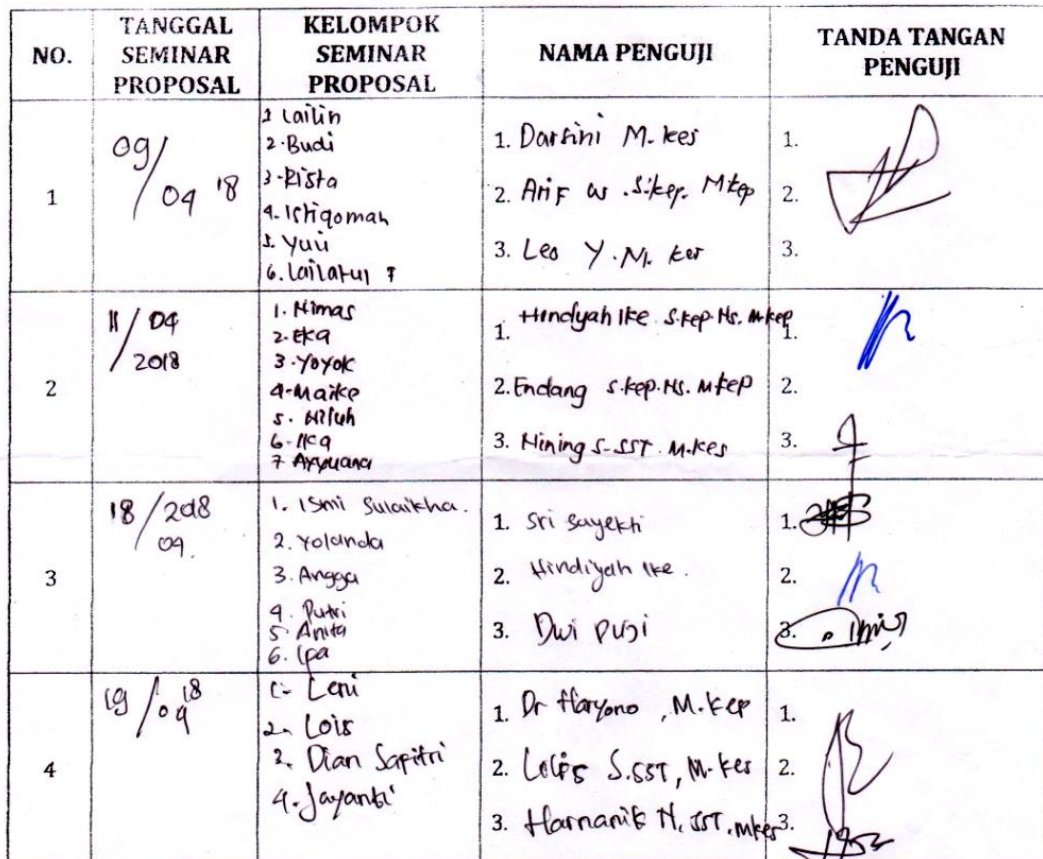 NO.
TANGGAL
SEMINAR
PROPOSAL
KELOMPOK
SEMINAR
PROPOSAL
NAMA PENGUJI
TANDA TANGAN
PENGUJI
1
09/04 '18
1 Lailin
2. Budi
3. Rista
4. Istiqomah
5. Yuli
6. Lailatul F
1. Darsini M.kes
2. Arif W .S.kep. Mkep
3. Leo Y. M. kes
1.
2.
3.
2
11/04
2018
1. Nimas
2. Eka
3. Yoyok
4. Maike
5. Niluh
6. Ika
7 Ayyuana
1. Hindyah Ike S.kep.Ns. M.kep
2. Endang S.kep.Ns. Mkep
3. Nining S.SST. M.Kes
1.
2.
3.
3
18/2018
04
1. Ismi Sulaikha.
2. Yolanda
3. Angga
4. Putri
5. Anita
6. Ipa
1. Sri Sayekti
2. Hindiyah Ike.
3. Dwi Puji
1.
2.
3.
4
19/04 18
1. Leni
2. Lois
3. Dian Sapitri
4. Jayanti
1. Dr Haryono, M.Kep
2. S.SST, M.Kes
3. Harnanik N. SST. mkes
1.
2.
3.